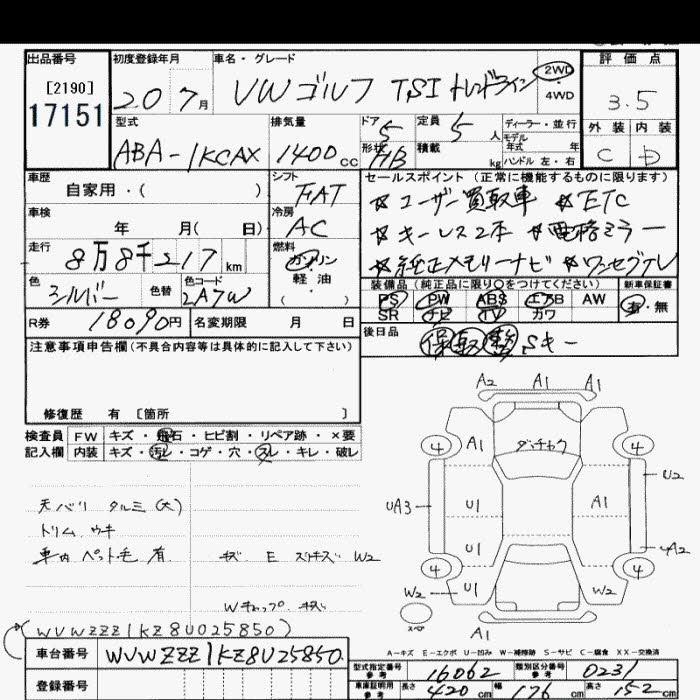 出品番号 初度登録年月 車名・グレード 評価点
[2190]
17151
20 7月 VW ゴルフ TSI トレンドライン 2WD 4WD 3.5
型式 排気量 ドア 定員 ディーラー・並行 外装 内装
ABA-1KCAX 1400cc 5 5人 モデル年式 年 C D
形状 HB 積載 kg ハンドル 左・右
車歴 シフト セールスポイント(正常に機能するものに限ります)
自家用・( ) FAT ☆ユーザー買取車 ☆ETC
車検 冷房 ☆キーレス2本 ☆電格ミラー
年 月( 日) AC ☆純正メモリーナビ ☆ワンセグTV
走行 燃料
8万8千217km ガソリン
軽油
( )
色 色替 色コード
シルバー 2A7W
装備品(純正品に限り○をつけてください) 新車保証書
PS PW ABS エアB AW 有・無
SR ナビ TV カワ
R券 18090円 名変期限 月 日
後日品 保 取 整 Sキー
注意事項申告欄(不具合内容等は具体的に記入して下さい)
修復歴 有 [箇所 ]
検査員 FW キズ・飛石・ヒビ割・リペア跡・×要
記入欄 内装 キズ・汚レ・コゲ・穴・スレ・キレ・破レ
天バリ タルミ(大)
トリム ウキ
車内 ペット毛 有 キズ E スリキズ W2
Wチョップ キズ
A2 A1 A1
4 A1 ダッチャク 4
U2
UA3 U1 A1
U1 UA2
4 4
W2 U1 W2
スペア A1
A-キズ E-エクボ U-凹み W-補修跡 S-サビ C-腐食 XX-交換済
(WVWZZZ1KZ8U025850)
車台番号 WVWZZZ1KZ8U025850
登録番号
型式指定番号 参考 16062 類別区分番号 参考 0231
車庫証明用 参考 長さ 420cm 幅 176cm 高さ 152cm